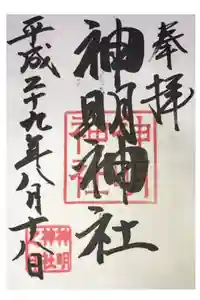 奉拝
神明神社
平成二十九年八月十八日
神明神社